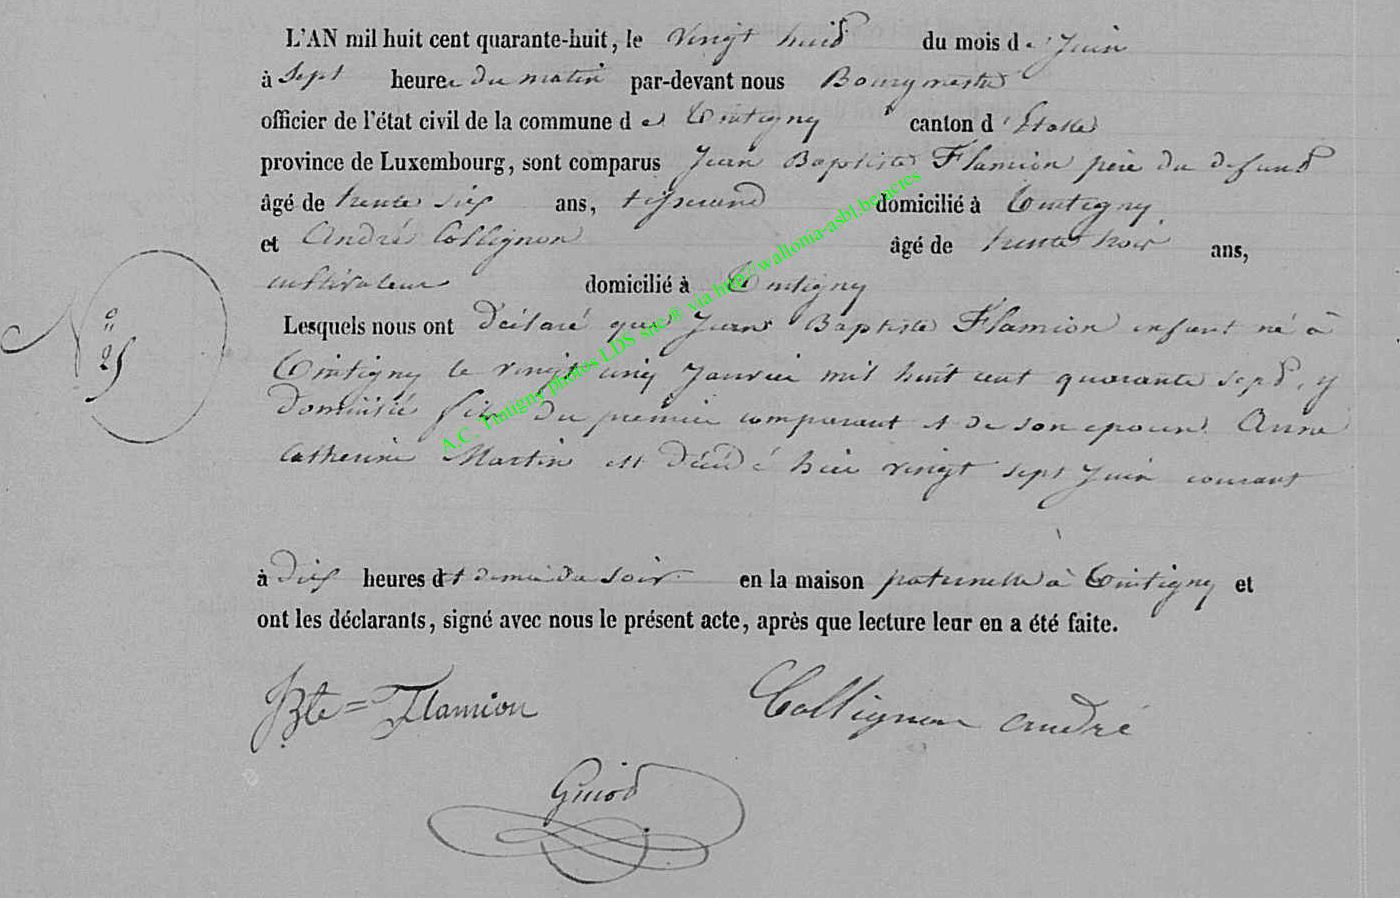 L'AN mil huit cent quarante-huit, le vingt huit du mois de Juin
à sept heures du matin par-devant nous Bourgmestre
officier de l'état civil de la commune de Tintigny canton d'Etalle
province de Luxembourg, sont comparus Jean Baptiste Flamion père du defunt
âgé de trente six ans, tisserand domicilié à Tintigny
et André Collignon âgé de trente trois ans,
cultivateur domicilié à Tintigny
Lesquels nous ont déclaré que Jean Baptiste Flamion enfant né à
N° 25
Tintigny le vingt cinq Janvier mil huit cent quarante sept, y
domicilié fils du premier comparant et de son epouse Anne
Catherine Martin est décédé hier vingt sept Juin courant
à dix heures et demie du soir en la maison paternelle à Tintigny et
ont les déclarants, signé avec nous le présent acte, après que lecture leur en a été faite.
JBte= Flamion Collignon andré
A.C. Tintigny photos LDS snc ® via http://wallonia-asbl.be/actes